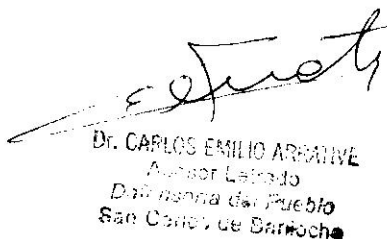 Dr. CARLOS EMILIO ARRATIVE
Asesor Letrado
Defensoría del Pueblo
San Carlos de Bariloche